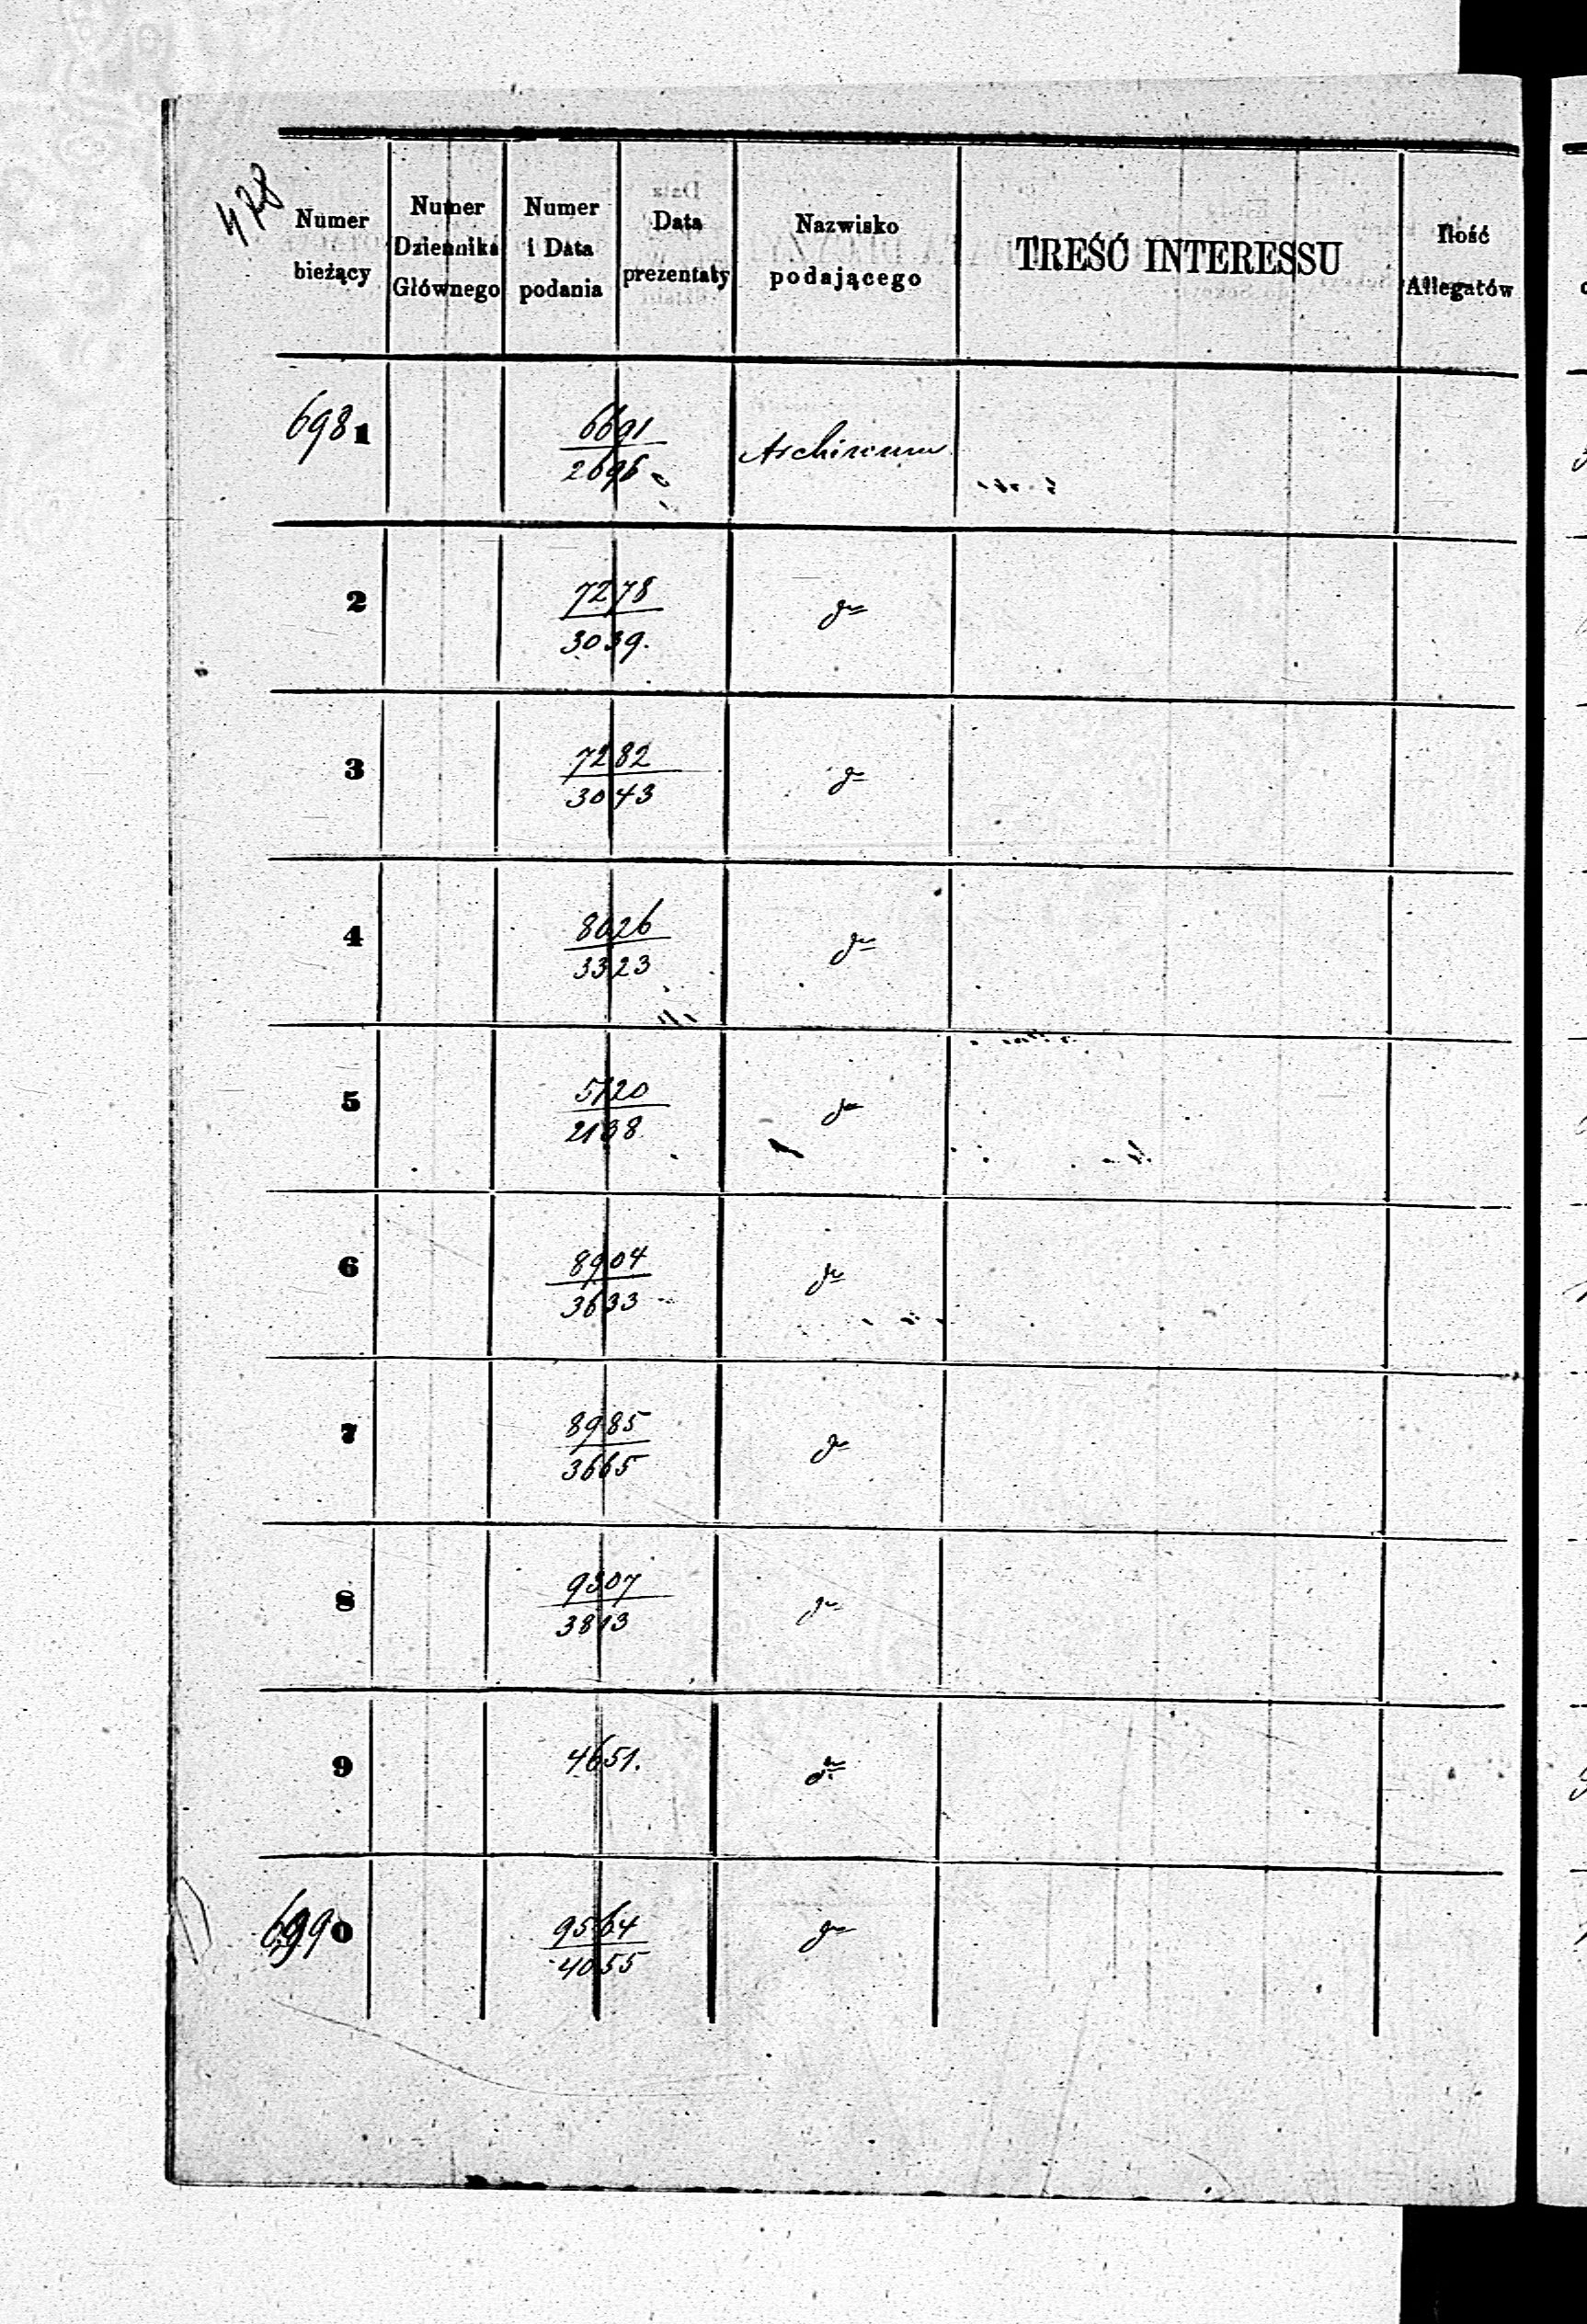 478
Numer bieżący
Numer Dziennika Głównego
Numer i Data podania
Data prezentaty
Nazwisko podającego
TREŚĆ INTERESSU
Ilość Allegatów
6981 6691 Archiwum
2696
2 7278 do
3039.
3 7282 do
3043
4 8026 do
3323
5 5120 do
2138
6 8904 do
3633
7 8985 do
3665
8 9307 do
3813
9 4651. do
6990 9564 do
4055